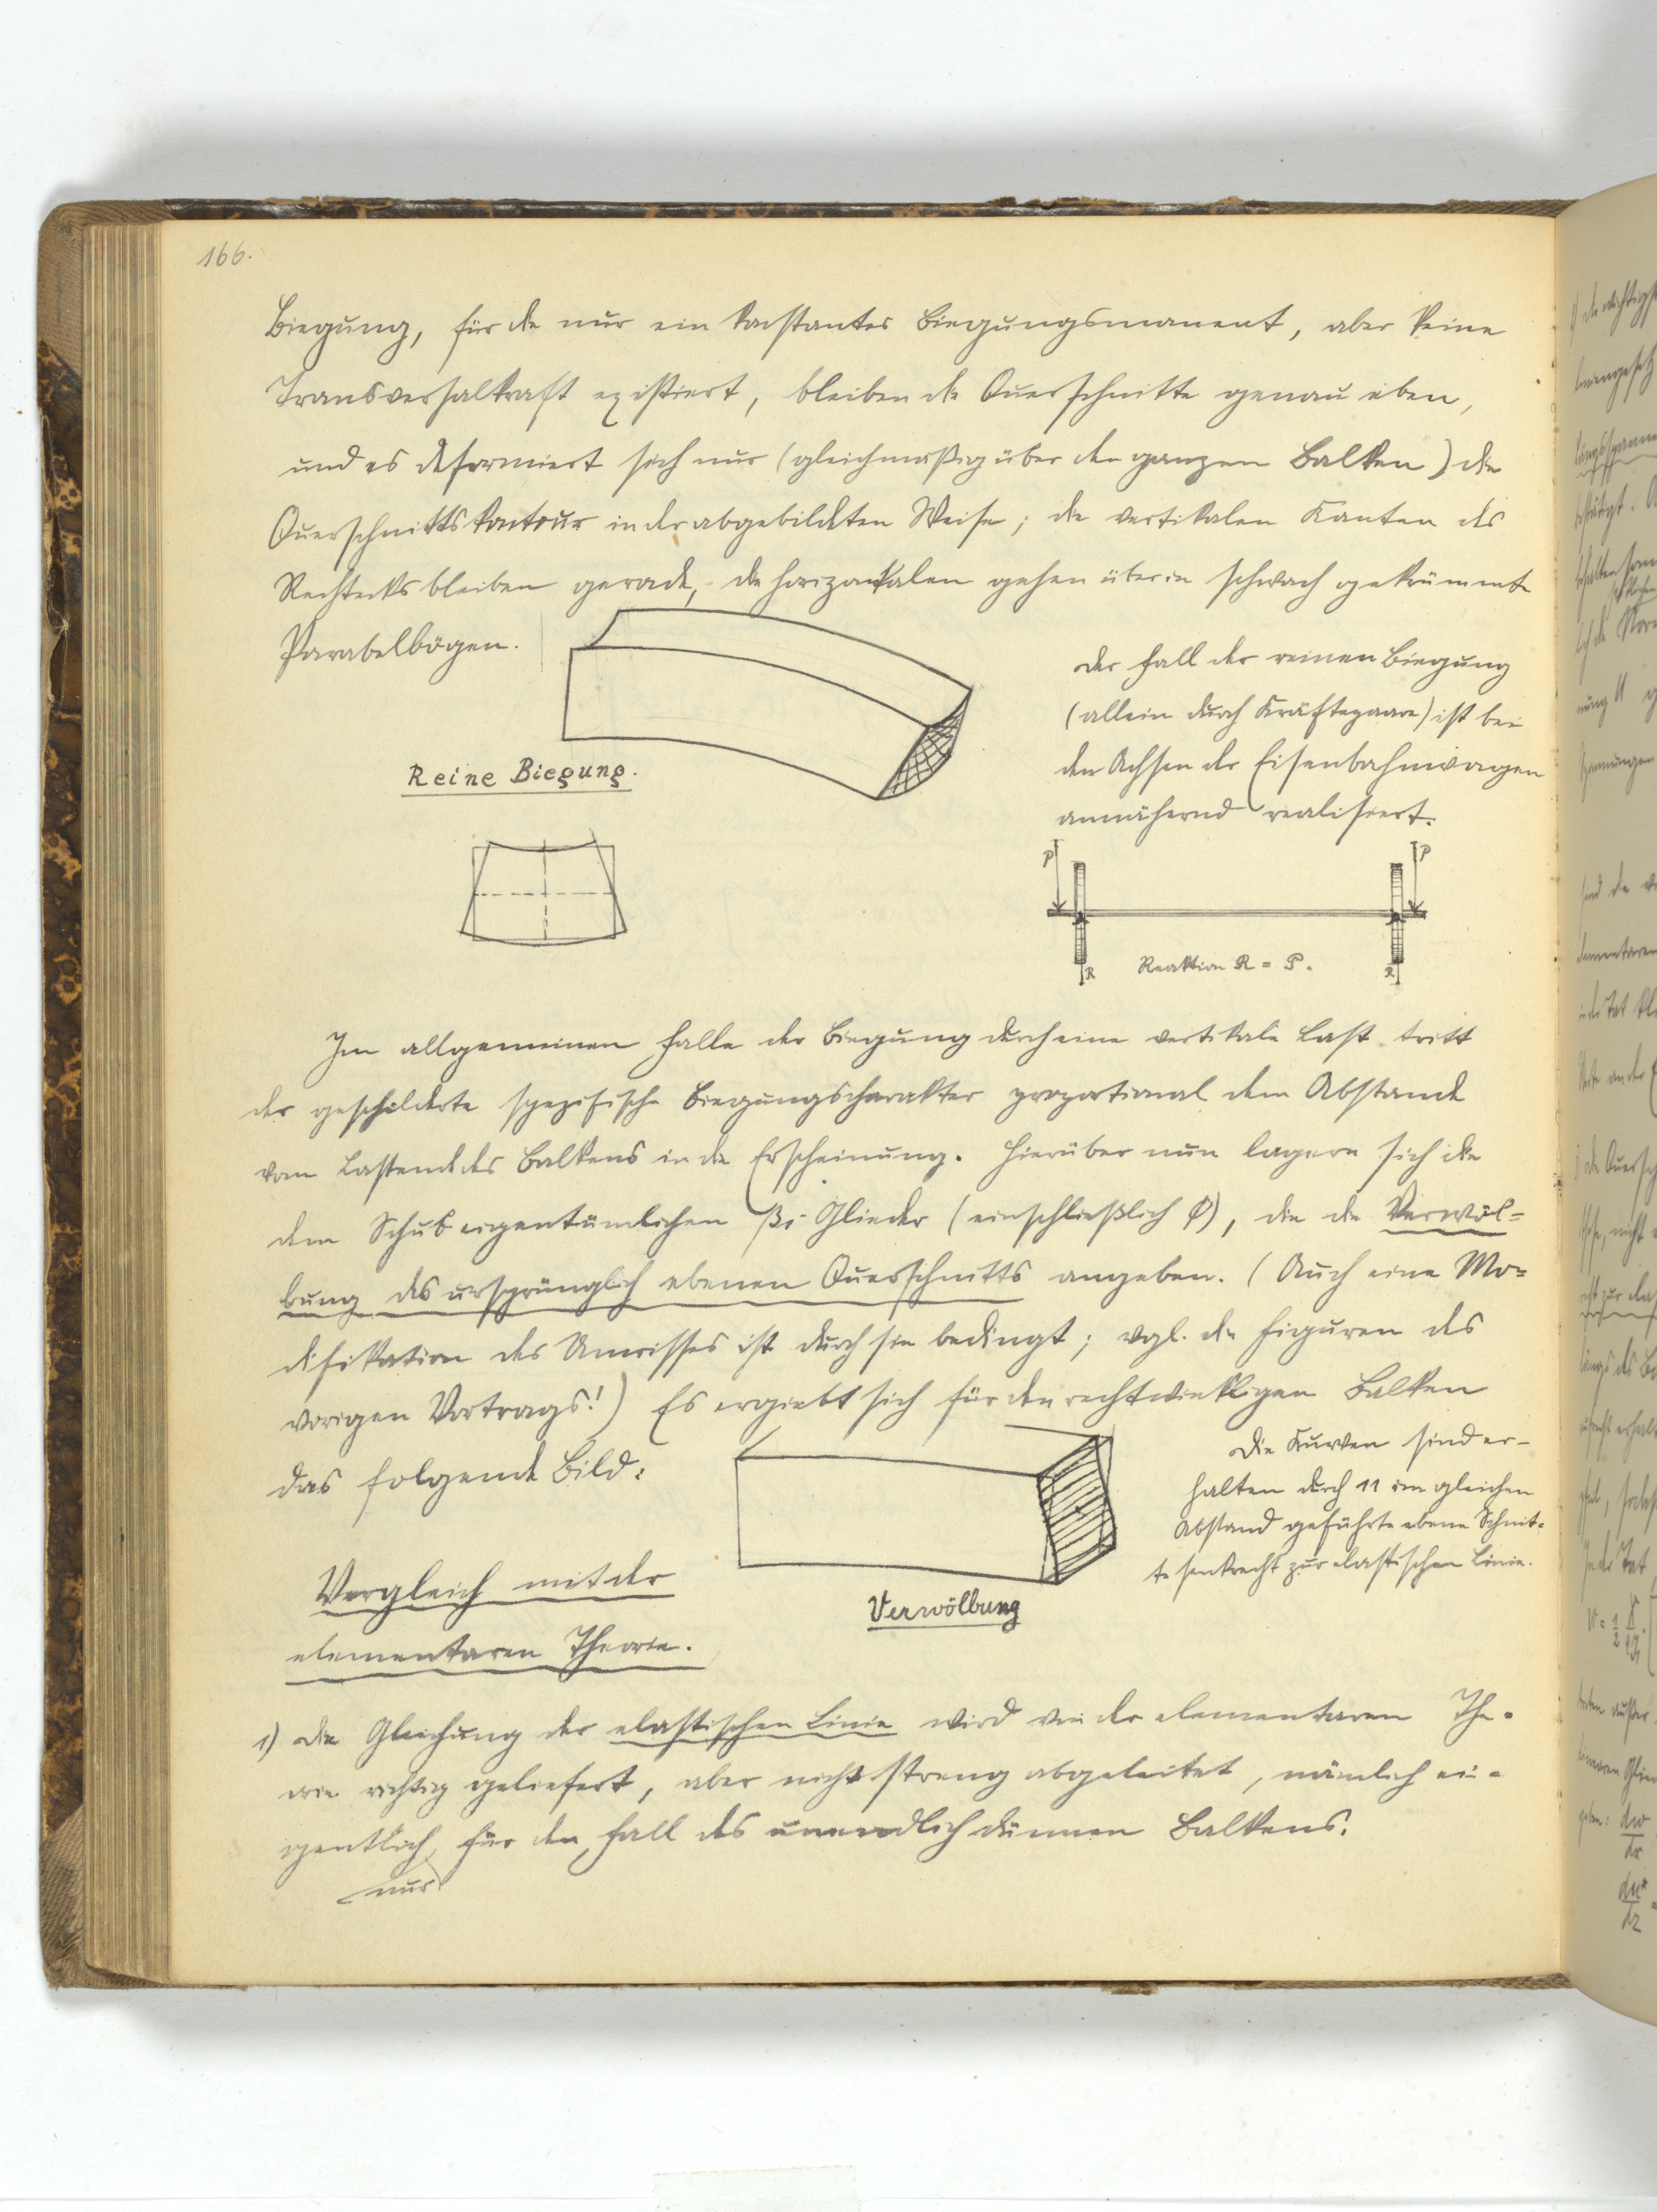 166.
Biegung, für die nur ein konstantes Biegungsmoment, aber keine
Transversalkraft existiert, bleiben die Querschnitte genau eben,
und es deformiert sich nur (gleichmäßig über den ganzen Balken) die
Querschnittskontour in der abgebildeten Weise; die vertikalen Kanten des
Rechtecks bleiben gerade, die horizontalen gehen über in schwach gekrümmte
Parabelbögen.
Der Fall der reinen Biegung
(allein durch Kräftepaare) ist bei
den Achsen der Eisenbahnwagen
annähernd realisiert.
Reine Biegung.
P P
R Reaktion R = P. R
Im allgemeinen Falle der Biegung durch eine vertikale Last tritt
der geschilderte spezifische Biegungscharakter proportional dem Abstande
vom Lastende des Balkens in die Erscheinung. Hierüber nun lagern sich die
dem Schub eigentümlichen Glieder (einschließlich φ), die die Verwöl=
bung des ursprünglich ebenen Querschnitts angeben. (Auch eine Mo=
difikation des Umrisses ist durch sie bedingt; vgl. die Figuren des
vorigen Vortrags!) Es ergiebt sich für den rechtwinkligen Balken
das folgende Bild:
Die Kurven sind er-
halten durch 11 im gleichen
Abstand geführte ebene Schnit=
te senkrecht zur elastischen Linie.
Verwölbung
Vergleich mit der
elementaren Theorie.
1) Die Gleichung der elastischen Linie wird von der elementaren The=
orie richtig geliefert, aber nicht streng abgeleitet, nämlich ei=
gentlich für den Fall des unendlich dünnen Balkens.
nur